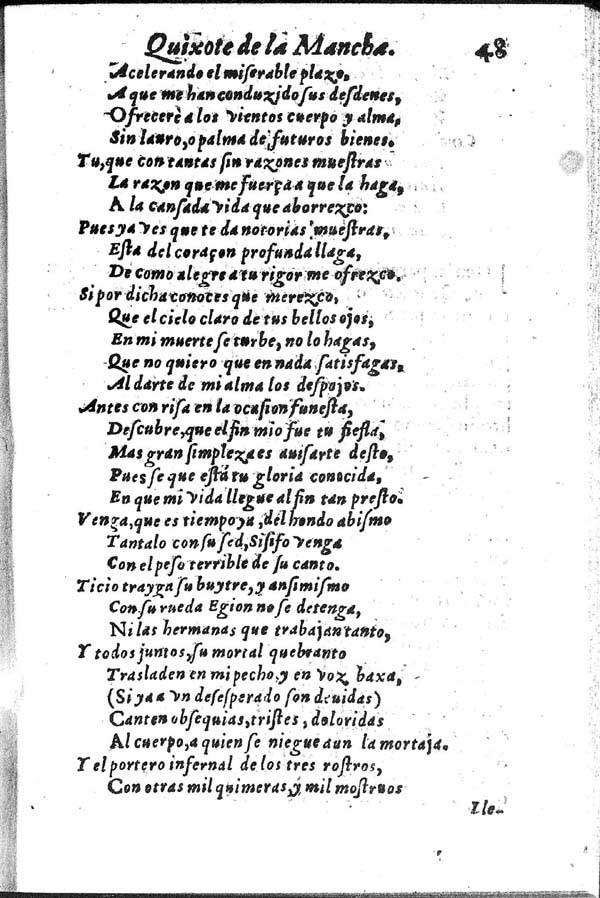 Quixote de la Mancha. 48
Acelerando el miſerable plazo,
A que me han conduzido ſus deſdenes,
Ofrecerè a los vientos cuerpo y alma,
Sin lauro, o palma de futuros bienes.
Tu, que con tantas ſin razones mueſtras
La razon que me fuerça a que la haga,
A la canſada vida que aborrezco:
Pues ya ves que te da notorias mueſtras,
Eſta del coraçon profunda llaga,
De como alegre a tu rigor me ofrezco.
Si por dicha conoces que merezco,
Que el cielo claro de tus bellos ojos,
En mi muerte ſe turbe, no lo hagas,
Que no quiero que en nada ſatisfagas,
Al darte de mi alma los deſpojos.
Antes con riſa en la ocaſion funeſta,
Deſcubre, que el fin mio fue tu fieſta,
Mas gran ſimpleza es auiſarte deſto,
Pues ſe que eſtá tu gloria conocida,
En que mi vida llegue al fin tan preſto.
Venga, que es tiempo ya, del hondo abiſmo
Tantalo con ſu ſed, Siſifo venga
Con el peſo terrible de ſu canto.
Ticio trayga ſu buytre, y anſimiſmo
Con ſu rueda Egion no ſe detenga,
Ni las hermanas que trabajan tanto,
Y todos juntos, ſu mortal quebranto
Trasladen en mi pecho, y en voz baxa,
(Si ya a vn deſeſperado ſon deuidas)
Canten obſequias, triſtes, doloridas
Al cuerpo, a quien ſe niegue aun la mortaja.
Y el portero infernal de los tres roſtros,
Con otras mil quimeras, y mil moſtruos
Lle-